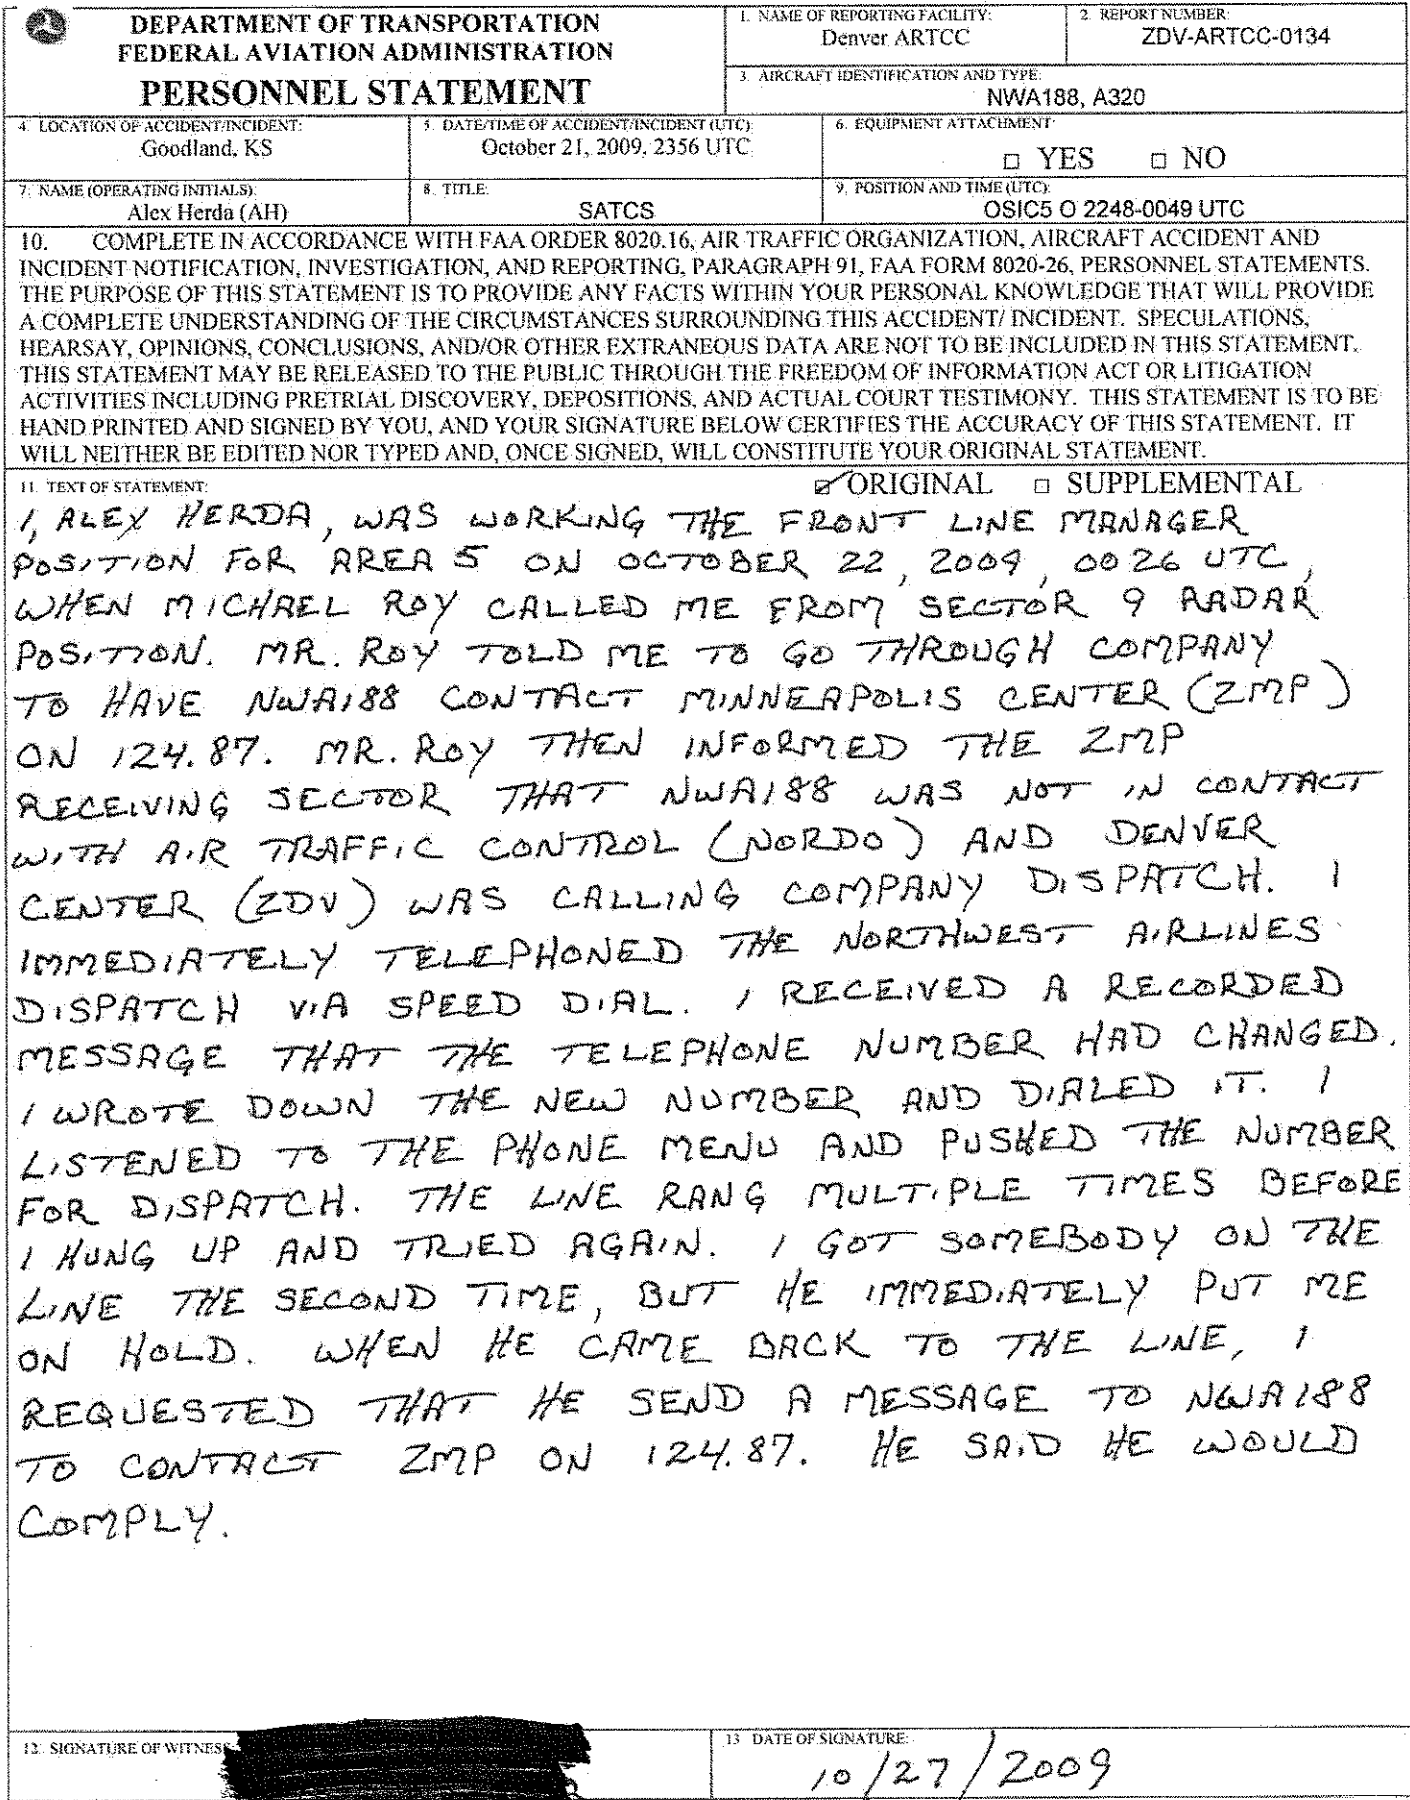 DEPARTMENT OF TRANSPORTATION
FEDERAL AVIATION ADMINISTRATION
PERSONNEL STATEMENT
1. NAME OF REPORTING FACILITY:
Denver ARTCC
2. REPORT NUMBER:
ZDV-ARTCC-0134
3. AIRCRAFT IDENTIFICATION AND TYPE:
NWA188, A320
4. LOCATION OF ACCIDENT/INCIDENT:
Goodland, KS
5. DATE/TIME OF ACCIDENT/INCIDENT (UTC):
October 21, 2009, 2356 UTC
6. EQUIPMENT ATTACHMENT
□ YES □ NO
7. NAME (OPERATING INITIALS):
Alex Herda (AH)
8. TITLE:
SATCS
9. POSITION AND TIME (UTC):
OSIC5 O 2248-0049 UTC
10. COMPLETE IN ACCORDANCE WITH FAA ORDER 8020.16, AIR TRAFFIC ORGANIZATION, AIRCRAFT ACCIDENT AND
INCIDENT NOTIFICATION, INVESTIGATION, AND REPORTING, PARAGRAPH 91, FAA FORM 8020-26, PERSONNEL STATEMENTS.
THE PURPOSE OF THIS STATEMENT IS TO PROVIDE ANY FACTS WITHIN YOUR PERSONAL KNOWLEDGE THAT WILL PROVIDE
A COMPLETE UNDERSTANDING OF THE CIRCUMSTANCES SURROUNDING THIS ACCIDENT/ INCIDENT. SPECULATIONS,
HEARSAY, OPINIONS, CONCLUSIONS, AND/OR OTHER EXTRANEOUS DATA ARE NOT TO BE INCLUDED IN THIS STATEMENT.
THIS STATEMENT MAY BE RELEASED TO THE PUBLIC THROUGH THE FREEDOM OF INFORMATION ACT OR LITIGATION
ACTIVITIES INCLUDING PRETRIAL DISCOVERY, DEPOSITIONS, AND ACTUAL COURT TESTIMONY. THIS STATEMENT IS TO BE
HAND PRINTED AND SIGNED BY YOU, AND YOUR SIGNATURE BELOW CERTIFIES THE ACCURACY OF THIS STATEMENT. IT
WILL NEITHER BE EDITED NOR TYPED AND, ONCE SIGNED, WILL CONSTITUTE YOUR ORIGINAL STATEMENT.
11. TEXT OF STATEMENT: ☑ ORIGINAL □ SUPPLEMENTAL
I, ALEX HERDA, WAS WORKING THE FRONT LINE MANAGER
POSITION FOR AREA 5 ON OCTOBER 22, 2009, 0026 UTC,
WHEN MICHAEL ROY CALLED ME FROM SECTOR 9 RADAR
POSITION. MR. ROY TOLD ME TO GO THROUGH COMPANY
TO HAVE NWA188 CONTACT MINNEAPOLIS CENTER (ZMP)
ON 124.87. MR. ROY THEN INFORMED THE ZMP
RECEIVING SECTOR THAT NWA188 WAS NOT IN CONTACT
WITH AIR TRAFFIC CONTROL (NORDO) AND DENVER
CENTER (ZDV) WAS CALLING COMPANY DISPATCH. I
IMMEDIATELY TELEPHONED THE NORTHWEST AIRLINES
DISPATCH VIA SPEED DIAL. I RECEIVED A RECORDED
MESSAGE THAT THE TELEPHONE NUMBER HAD CHANGED.
I WROTE DOWN THE NEW NUMBER AND DIALED IT. I
LISTENED TO THE PHONE MENU AND PUSHED THE NUMBER
FOR DISPATCH. THE LINE RANG MULTIPLE TIMES BEFORE
I HUNG UP AND TRIED AGAIN. I GOT SOMEBODY ON THE
LINE THE SECOND TIME, BUT HE IMMEDIATELY PUT ME
ON HOLD. WHEN HE CAME BACK TO THE LINE, I
REQUESTED THAT HE SEND A MESSAGE TO NWA188
TO CONTACT ZMP ON 124.87. HE SAID HE WOULD
COMPLY.
12. SIGNATURE OF WITNESS
13. DATE OF SIGNATURE:
10/27/2009